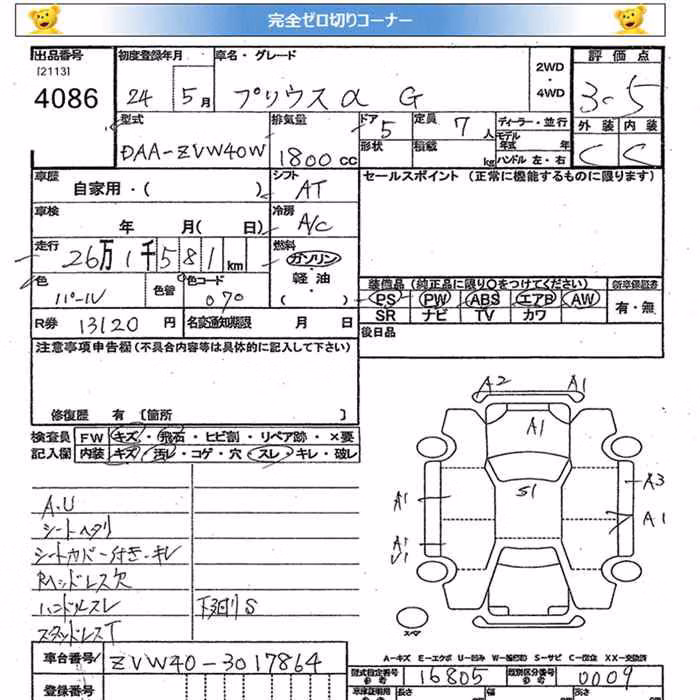 完全ゼロ切りコーナー
出品番号 初度登録年月 車名・グレード 2WD・4WD 評価点
[2113]
4086 24 5月 プリウスα G 3.5
型式 排気量 ドア 定員 ディーラー・並行 外装 内装
DAA-ZVW40W 1800cc 5 7人 モデル年式 年 C C
形状 積載 kg ハンドル 左・右
車歴 自家用・( ) シフト AT セールスポイント (正常に機能するものに限ります)
車検 年 月( 日) 冷房 A/C
走行 26万1千581km 燃料 ガソリン・軽油・( )
色 パール 色替 色コード 070 装備品 (純正品に限り○をつけてください) 新車保証書
PS PW ABS エアB AW 有・無
SR ナビ TV カワ
R券 13120円 名変通知期限 月 日 後日品
注意事項申告欄(不具合内容等は具体的に記入して下さい)
修復歴 有 [箇所 ]
検査員記入欄 FW キズ・飛石・ヒビ割・リペア跡・×要
内装 キズ・汚レ・コゲ・穴・スレ・キレ・破レ
A.U
シートヘタリ
シートカバー付き・キレ
Rヘッドレス欠
ハンドルスレ 下廻りS
スタッドレスT
A2 A1
A1
S1
A1 A3
A1
A1
U1
スペア
A-キズ E-エクボ U-凹み W-補修跡 S-サビ C-腐食 XX-交換済
車台番号 ZVW40-3017864
型式指定番号 参考 16805 類別区分番号 参考 0009
登録番号 長さ 幅 高さ